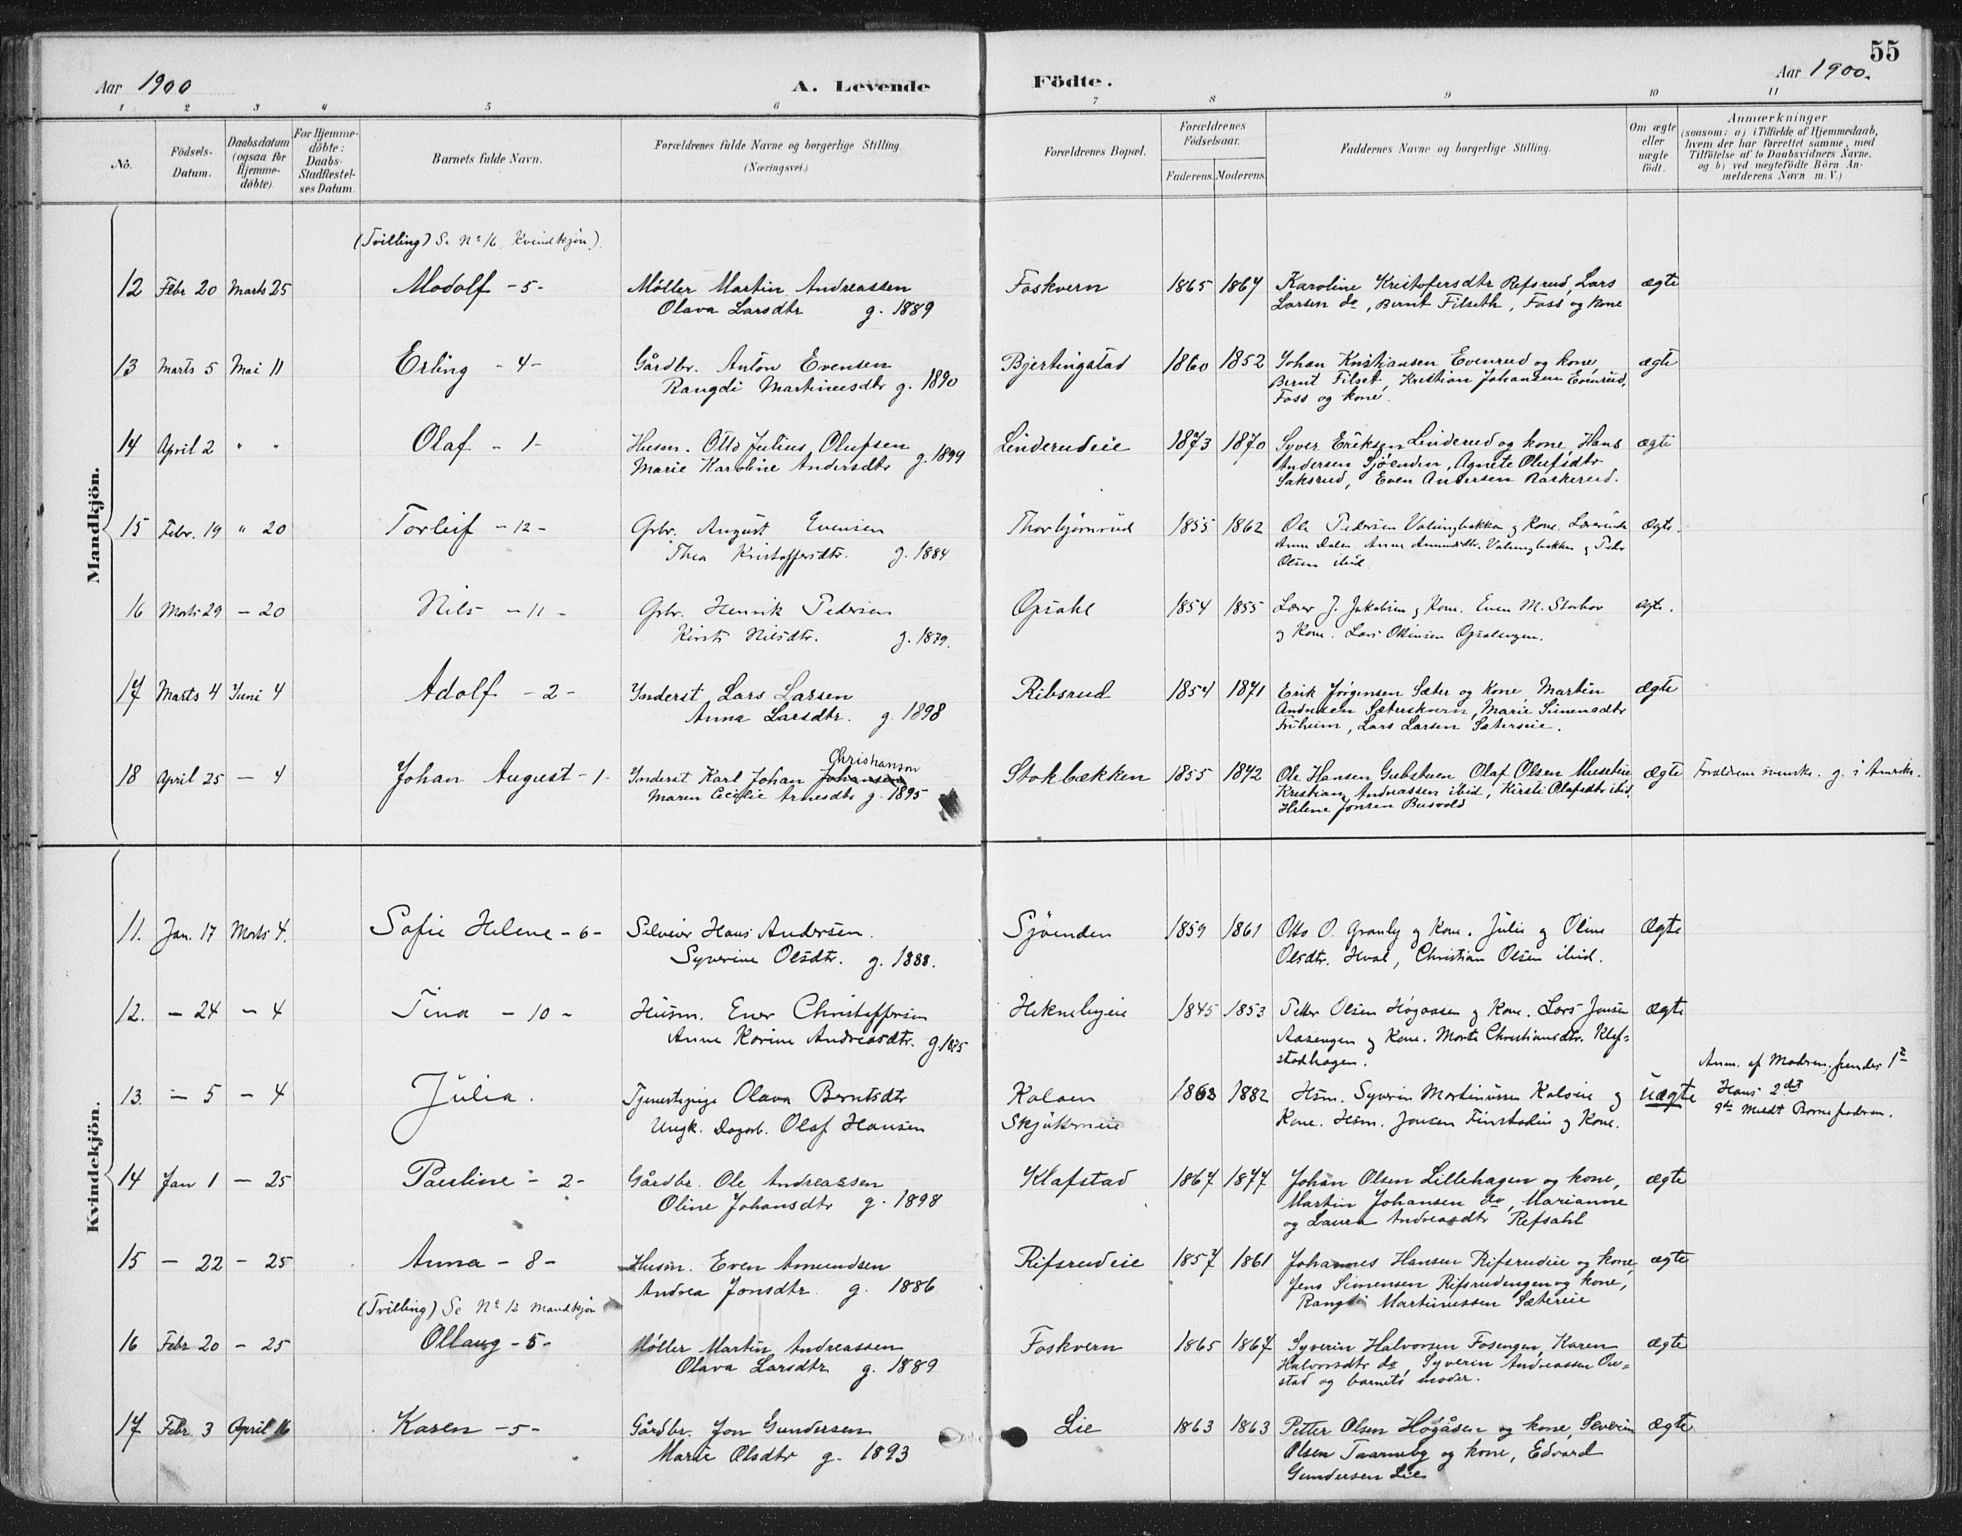 55
Aar 1900
A. Levende
Födte.
Aar 1900.
1 2 3 4 5 6 7 8 9 10 11
No.
Födsels-
Datum.
Daabsdatum
(ogsaa for
Hjemme-
döbte).
For Hjemme-
döbte:
Daabs-
Stadfæstel-
ses Datum.
Barnets fulde Navn.
Forældrenes fulde Navne og borgerlige Stilling.
(Næringsvei.)
Forældrenes Bopæl.
Forældrenes
Födselsaar.
Faderens. Moderens.
Faddernes Navne og borgerlige Stilling.
Om ægte
eller
uægte
födt.
Anmærkninger
(saasom: a) i Tilfælde af Hjemmedaab,
hvem der har forrettet samme, med
Tilföielse af to Daabsvidners Navne,
og b) ved uægtefödte Börn An-
melderens Navn m. V.)
Mandkjön.
(Tvilling) Se No 16, Kvindkjön).
12 Febr 20 Marts 25 Modolf - 5 - Möller Martin Andreassen Foskvern 1865 1867 Karoline Kristofersdtr Refsrud, Lars ægte
Olava Larsdtr g. 1889 Larsen do, Bernt Filseth, Foss og kone
13 Marts 5 Mai 11 Erling - 4 - Gårdbr. Anton Evensen Bjertingstad 1860 1852 Johan Kristiansen Evenrud og kone, ægte
Rangdi Martinusdtr g. 1890 Bernt Filset, Kristian Johansen Evenrud,
Foss og kone.
14 April 2 " " Olaf - 1 - Husm. Otto Julius Olufsen Linderudeie 1873 1870 Syver Eriksen Linderud og kone, Hans ægte
Marie Karoline Andersdtr g. 1899 Andersen Sjöenden, Agnete Olufsdtr
Saksrud, Even Andersen Raskerud.
15 Febr. 19 " 20 Torleif - 12 - Grbr. August Evensen Thorbjörnrud 1855 1862 Ole Pedersen og Kone. Lærerinde Ægte.
Thea Kristoffersdtr. g. 1884 Anna Dalen Anne Amundsdtr. og Peder
Olsen ibid.
16 Marts 29 - 20 Nils - 11 - Grbr. Henrik Pedersen Opsahl 1854 1855 Lærer J. Jakobsen og Kone. Even M. Storhov ægte.
Kirsti Nilsdtr. g. 1879. og Kone. Lars Ottinsen Opsalengen.
17 Marts 4 Juni 4 Adolf - 2 - Inderst Lars Larsen Ribsrud 1854 1871 Erik Jørgensen Sæter og Kone Martin ægte
Anna Larsdtr. g. 1898 Andresen Sæterskvern, Marie Simensdtr
Friheim, Lars Larsen Sæterseie.
Christianson
18 April 25 - 4 Johan August - 1 - Inderst Karl Johan Johansen Stokbækken 1855 1872 Ole Hansen Gubstuen Olaf Olsen Musebeie Ægte Forældrene svenske. g. i Amerika.
Maren Cecilie Arnesdtr g. 1895 Kristian Andreassen ibid, Kirsti Olafsdtr ibid,
Helene Jonsen Busvold
Kvindekjön.
11. Jan. 17 Marts 4. Sofie Helene - 6 - Selveier Hans Andersen. Sjöenden 1859 1861 Otto O. Granly og Kone. Julie og Oline Ægte
Syverine Olsdtr. g. 1888. Olsdtr. Hval, Christian Olsen ibid.
12. - 24 - 4 Tina - 10 - Husm. Ener Christoffersen Heknebyeie 1845 1853 Petter Olsen Høgaasen og Kone. Lars Jensen Ægte
Anne Karine Andreasdtr. g. 1875 Aasengen og Kone. Marte Christiansdtr. Klef-
stadhagen.
Anm. af Modren, fender 1ste
13. - 5 - 4 Julia. Tjenestepige Olava Berntsdtr Koloen 1862 1882 Hsm. Syverin Martinussen Kolseie og Uægte Hans 2det
Ungk. Dagarb. Olaf Hansen Skjækerneie Kone. Hsm. Jonsen Finstadeie og Kone. gdr Meldt Barnefadren.
14 Jan 1 - 25 Pauline - 2 - Gårdbr. Ole Andreassen Klafstad 1867 1877 Johan Olsen Lillehagen og kone, ægte
Oline Johansdtr g. 1898 Martin Johansen do, Marianne
og Laura Andreasdtr Refsahl
15 - 22 - 25 Anna - 8 - Husm. Even Amundsen Rifsrudeie 1857 1861 Johannes Hansen Rifsrudeie og kone, ægte
Andrea Jonsdtr. g. 1886 Jens Simensen Rifsrudengen og kone,
Rangdi Martinussen Sætereie
(Tvilling) Se No 12 Mandkjön
16 Febr 20 - 25 Ollaug - 5 - Möller Martin Andreassen Foskvern 1865 1867 Syverin Halvorsen Fosengen, Karen ægte
Olava Larsdtr g. 1889 Halvorsdtr do, Syverin Andreassen On-
stad og barnets moder.
17 Febr 3 April 16 Karen - 5 - Gårdbr. Jon Gundersen Lie 1863 1863 Petter Olsen Høgåsen og kone, Severin ægte
Marie Olsdtr g. 1893 Olsen Taarneby og kone, Edvard
Gundersen Lie